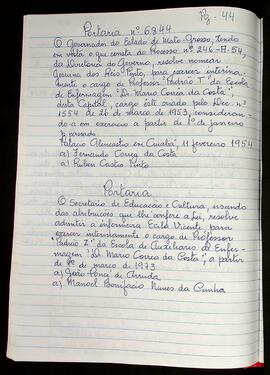 Pg - 44
Portaria nº 6944
O Governador do Estado de Mato-Grosso, tendo
em vista o que consta do Processo nº 246-A-54,
da Diretoria do Governo, resolve nomear
Gemina dos Reis Pinto para exercer interina
mente o cargo de Professor "Padrão T" da Escola
de Enfermagem "Dr. Mario Corrêa da Costa",
desta Capital, cargo êste criado pelo Dec. nº
1554 de 26 de março de 1953, consideran-
do-a em exercício a partir de 1º de janeiro
p. passado.
Palácio Alencastro em Cuiabá, 11 fevereiro 1954
a) Fernando Corrêa da Costa
a) Ruben Castro Pinto
Portaria
O Secretario de Educação e Cultura, usando
das atribuições que lhe confere a Lei, resolve
admitir a enfermeira Vicente, para
exercer interinamente o cargo de Professor
"Padrão Z" da Escola de Auxiliares de Enfer-
magem "Dr. Mario Correa da Costa", a partir
de 1º de março de 1973
a) João Ponce de Arruda
a) Manoel Bonifacio Nunes da Cunha